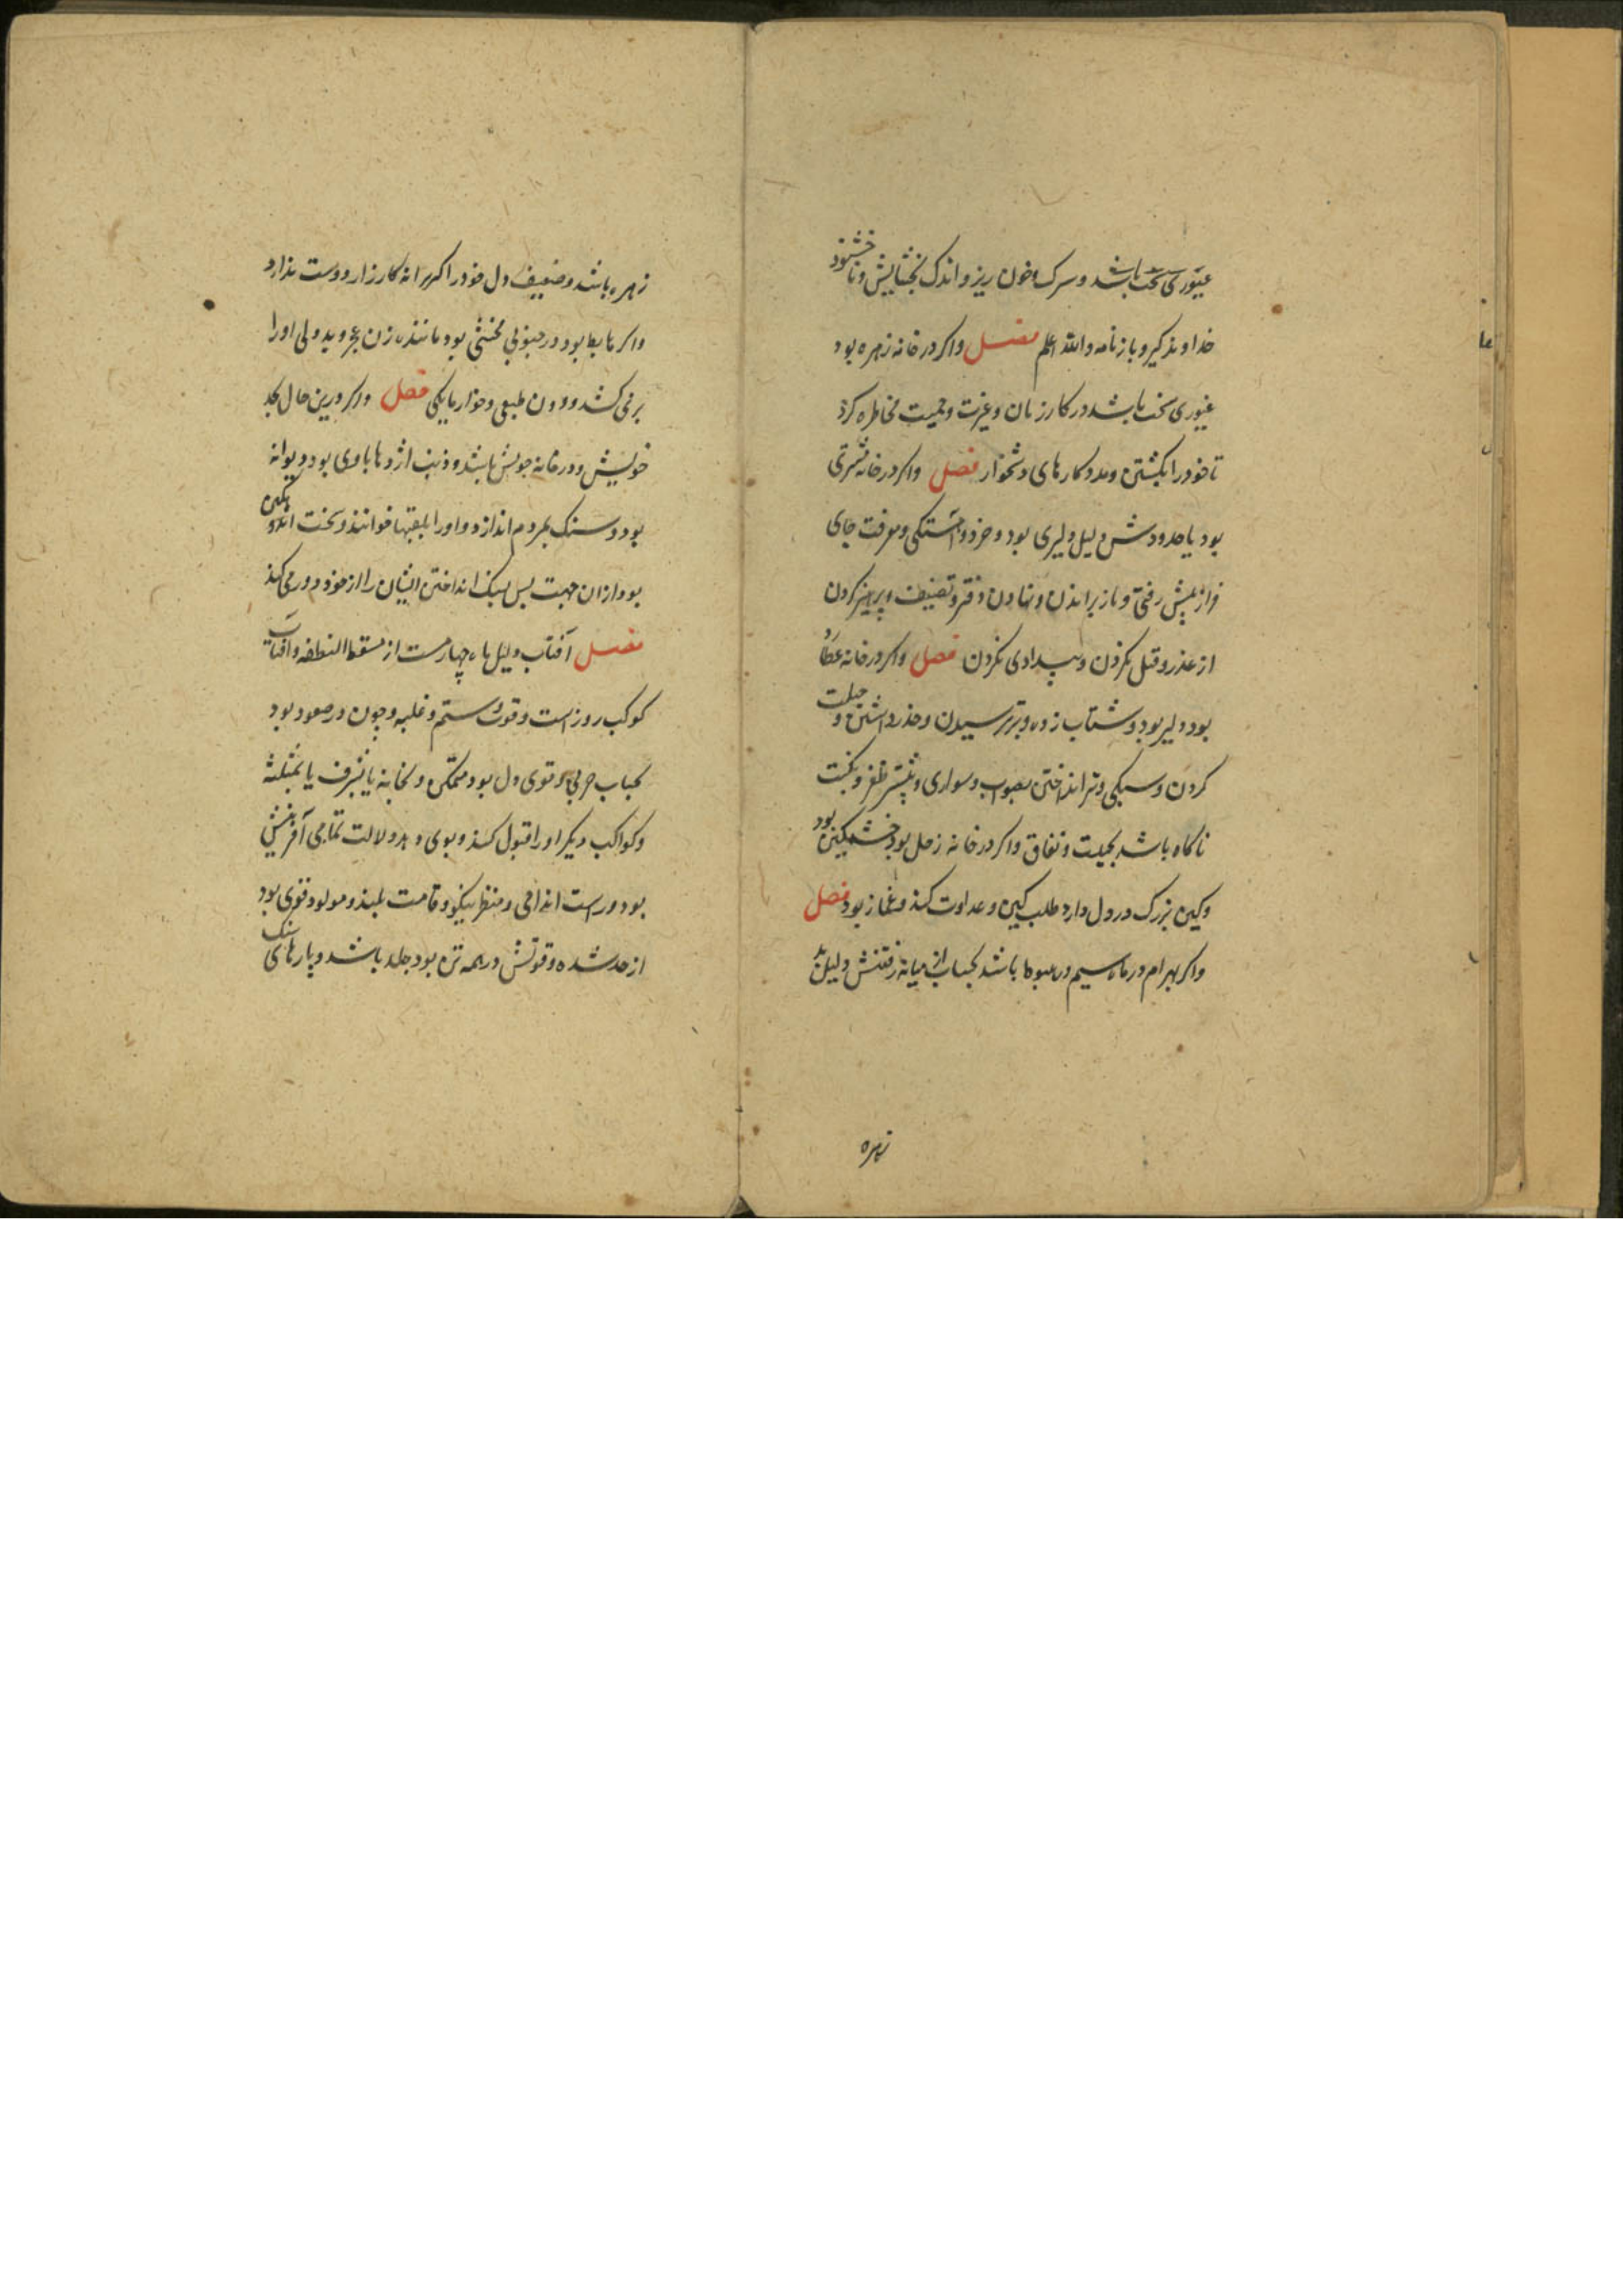 غیوری سخت باشد و سرک و خون ریز و اندک بخشایش و نا خشنود
خداوند کیر و باز نامه والله اعلم فصل واکر در خانه زهره بود
غیوری سخت باشد در کار زنان و غیرت و حمیت مخاطره کرد
تا خود را بکشتن دهد و کارهای دشخوار فصل واکر در خانه مشتری
بود یا حدودش دلیل دلیری بود و خرد و آهستکی و معرفت جای
فراز پیش رفتن و باز پس اندن و نهادن دفتر و تصنیف و پرهیز کردن
از عذر و قتل نکردن و بیدادی نکردن فصل واکر در خانه عطا
بود دلیر بود و شتاب زده و بترسیدن و حذر داشتن و حیلت
کردن و سبکی و تیر انداختن بصواب و سواری و بیشتر ظفر و نکبت
ناکاه باشد بحیلت و نفاق واکر در خانه زحل بود خشمکین بود
وکین بزرک در دل دارد طلب کین و عداوت کند و غماز بود فصل
واکر بهرام در ماه سیم در هبوط باشد بحساب از میانه رفتنش دلیل بد
زهره
زهره باشد و ضعیف دل خود را کمر انه کارزار دوست ندارد
واکر هابط بود در جنوبی مخنثی بود مانند زن بجوید ولی او را
بر می کشد و دون طبعی و خوار مایکی فصل واکر درین حال بحد
خویش و در خانه جویش باشد و ذنب اژدها باوی بود دیوانه
بود و سنک بمردم اندازد و او را بلقبها خوانند و سخت اندوهکین
بود ازان جهت پس سنک انداختن ایشان را از خود دور می کند
فصل آفتاب دلیل ماه چهارمست از مسقط النطفه و آفتاب
کوکب روز است و قوت و ستم و غلبه و چون در صعود بود
بحساب حربی و قوی دل بود متمکن و بخانه یا بشرف یا بمثلثه
و کواکب دیکر او را قبول کند و بوی دهد دلالت تمامی آفرینش
بود و راست اندامی و منظر نیکو و قامت بلند و مولود قوی بود
از حد شده و قوتش در همه تن بود جلد باشد و پارهای سنک